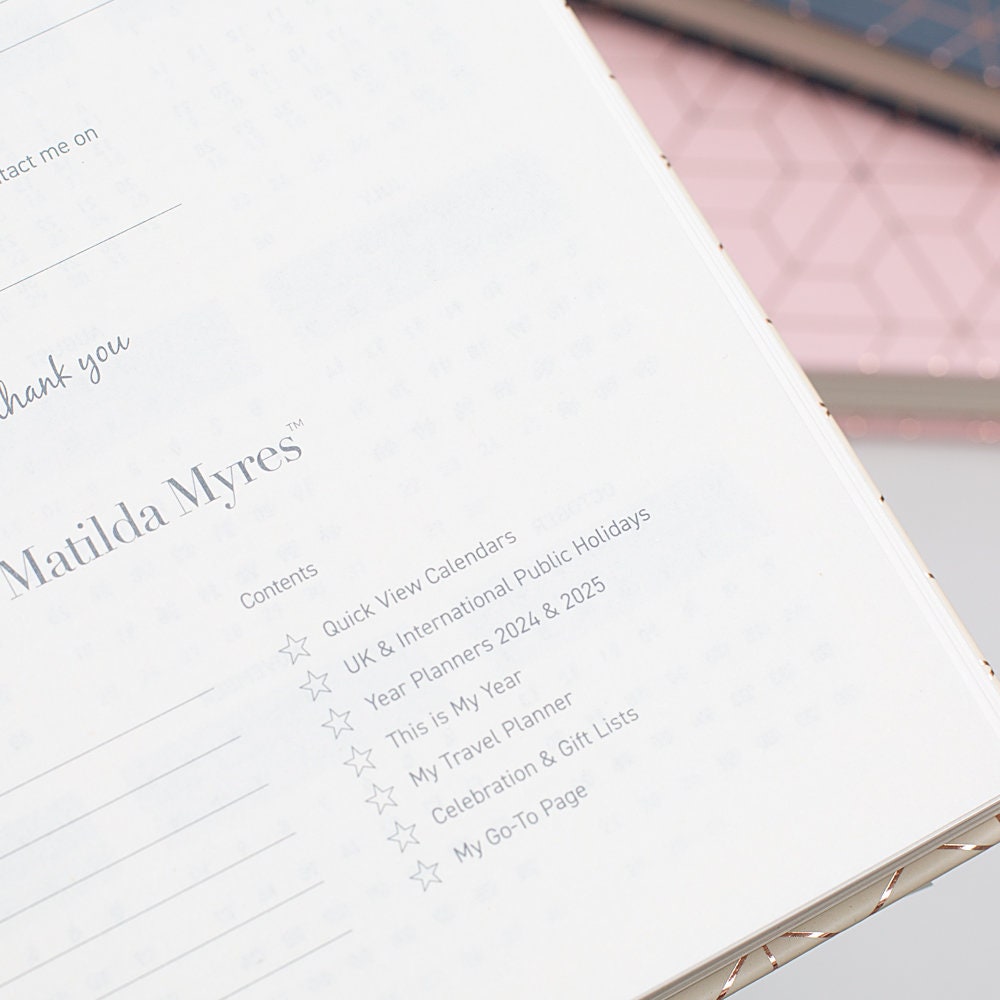 tact me on
thank you
Matilda Myres™
Contents
Quick View Calendars
UK & International Public Holidays
Year Planners 2024 & 2025
This is My Year
My Travel Planner
Celebration & Gift Lists
My Go-To Page